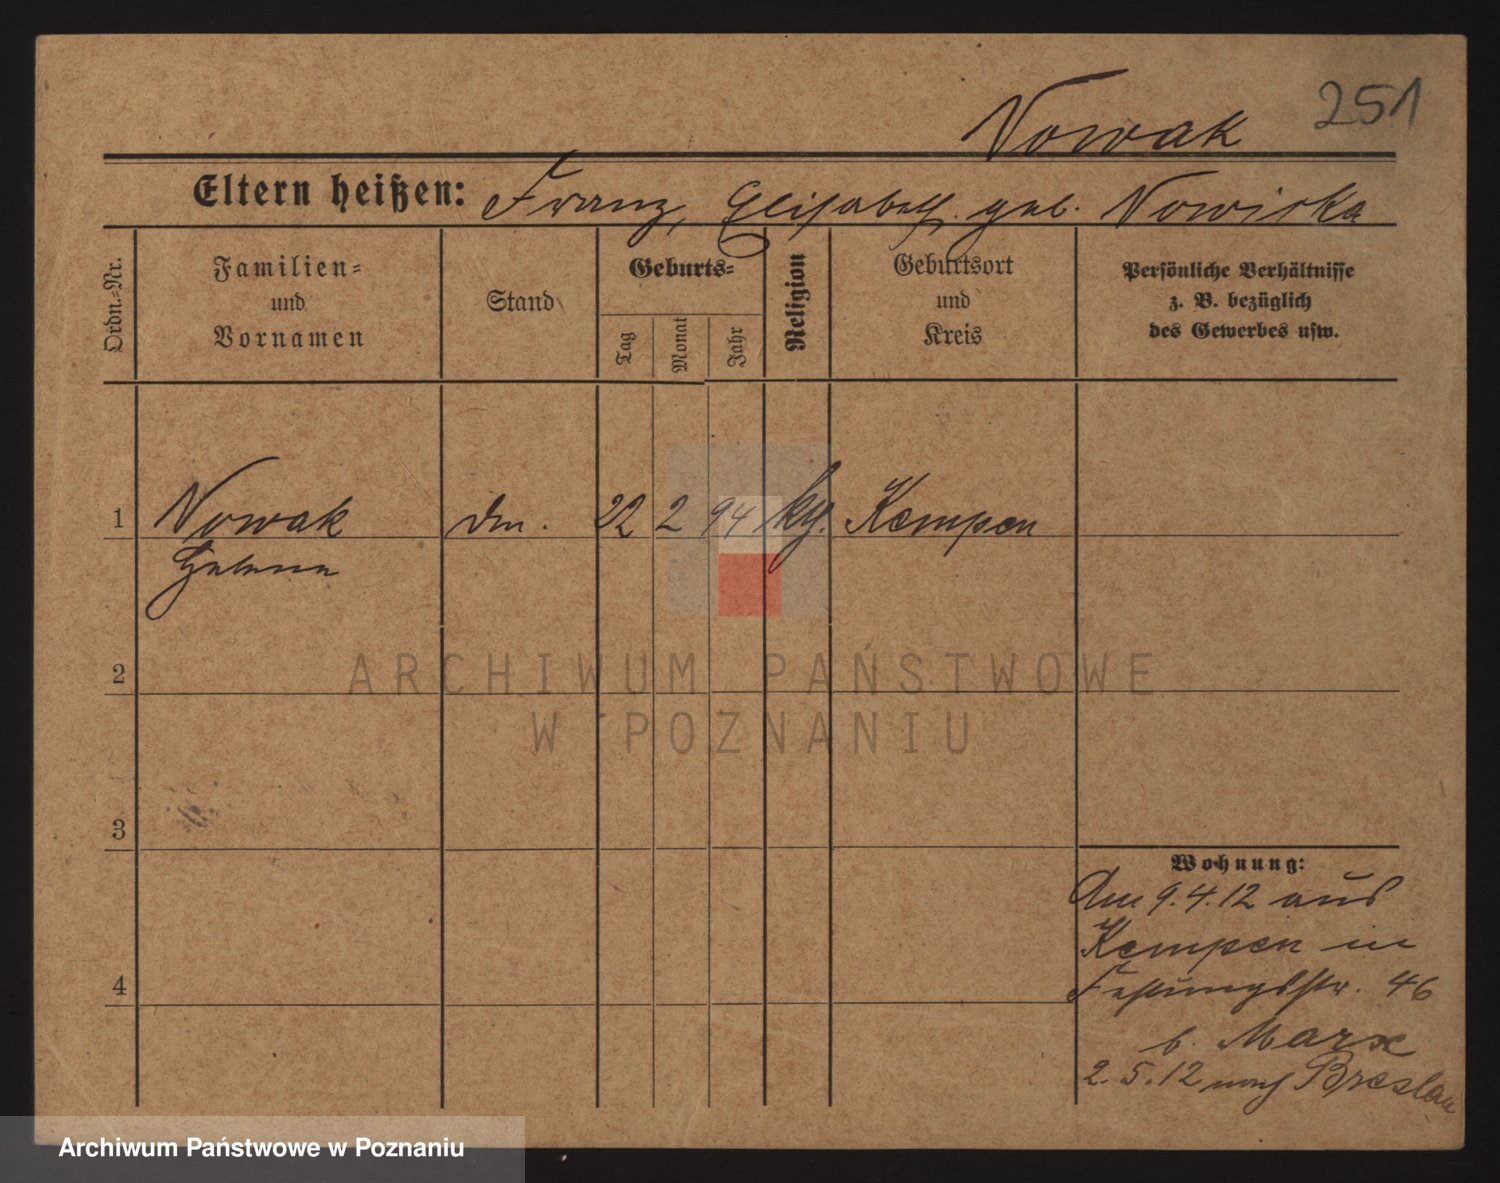 251
Nowak
Eltern heißen: Franz, Elisabeth geb. Nowicka
Ordn.-Nr.
Familien-
und
Vornamen
Stand
Geburts-
Tag
Monat
Jahr
Religion
Geburtsort
und
Kreis
Persönliche Verhältnisse
z. B. bezüglich
des Gewerbes usw.
1 Nowak 22 2 94 Kempen
Helene
2
3
4
Wohnung:
Am 9.4.12 aus
Kempen in
Festungsstr. 46
b. Marx
2.5.12 nach Breslau
ARCHIWUM PAŃSTWOWE
W POZNANIU
Archiwum Państwowe w Poznaniu